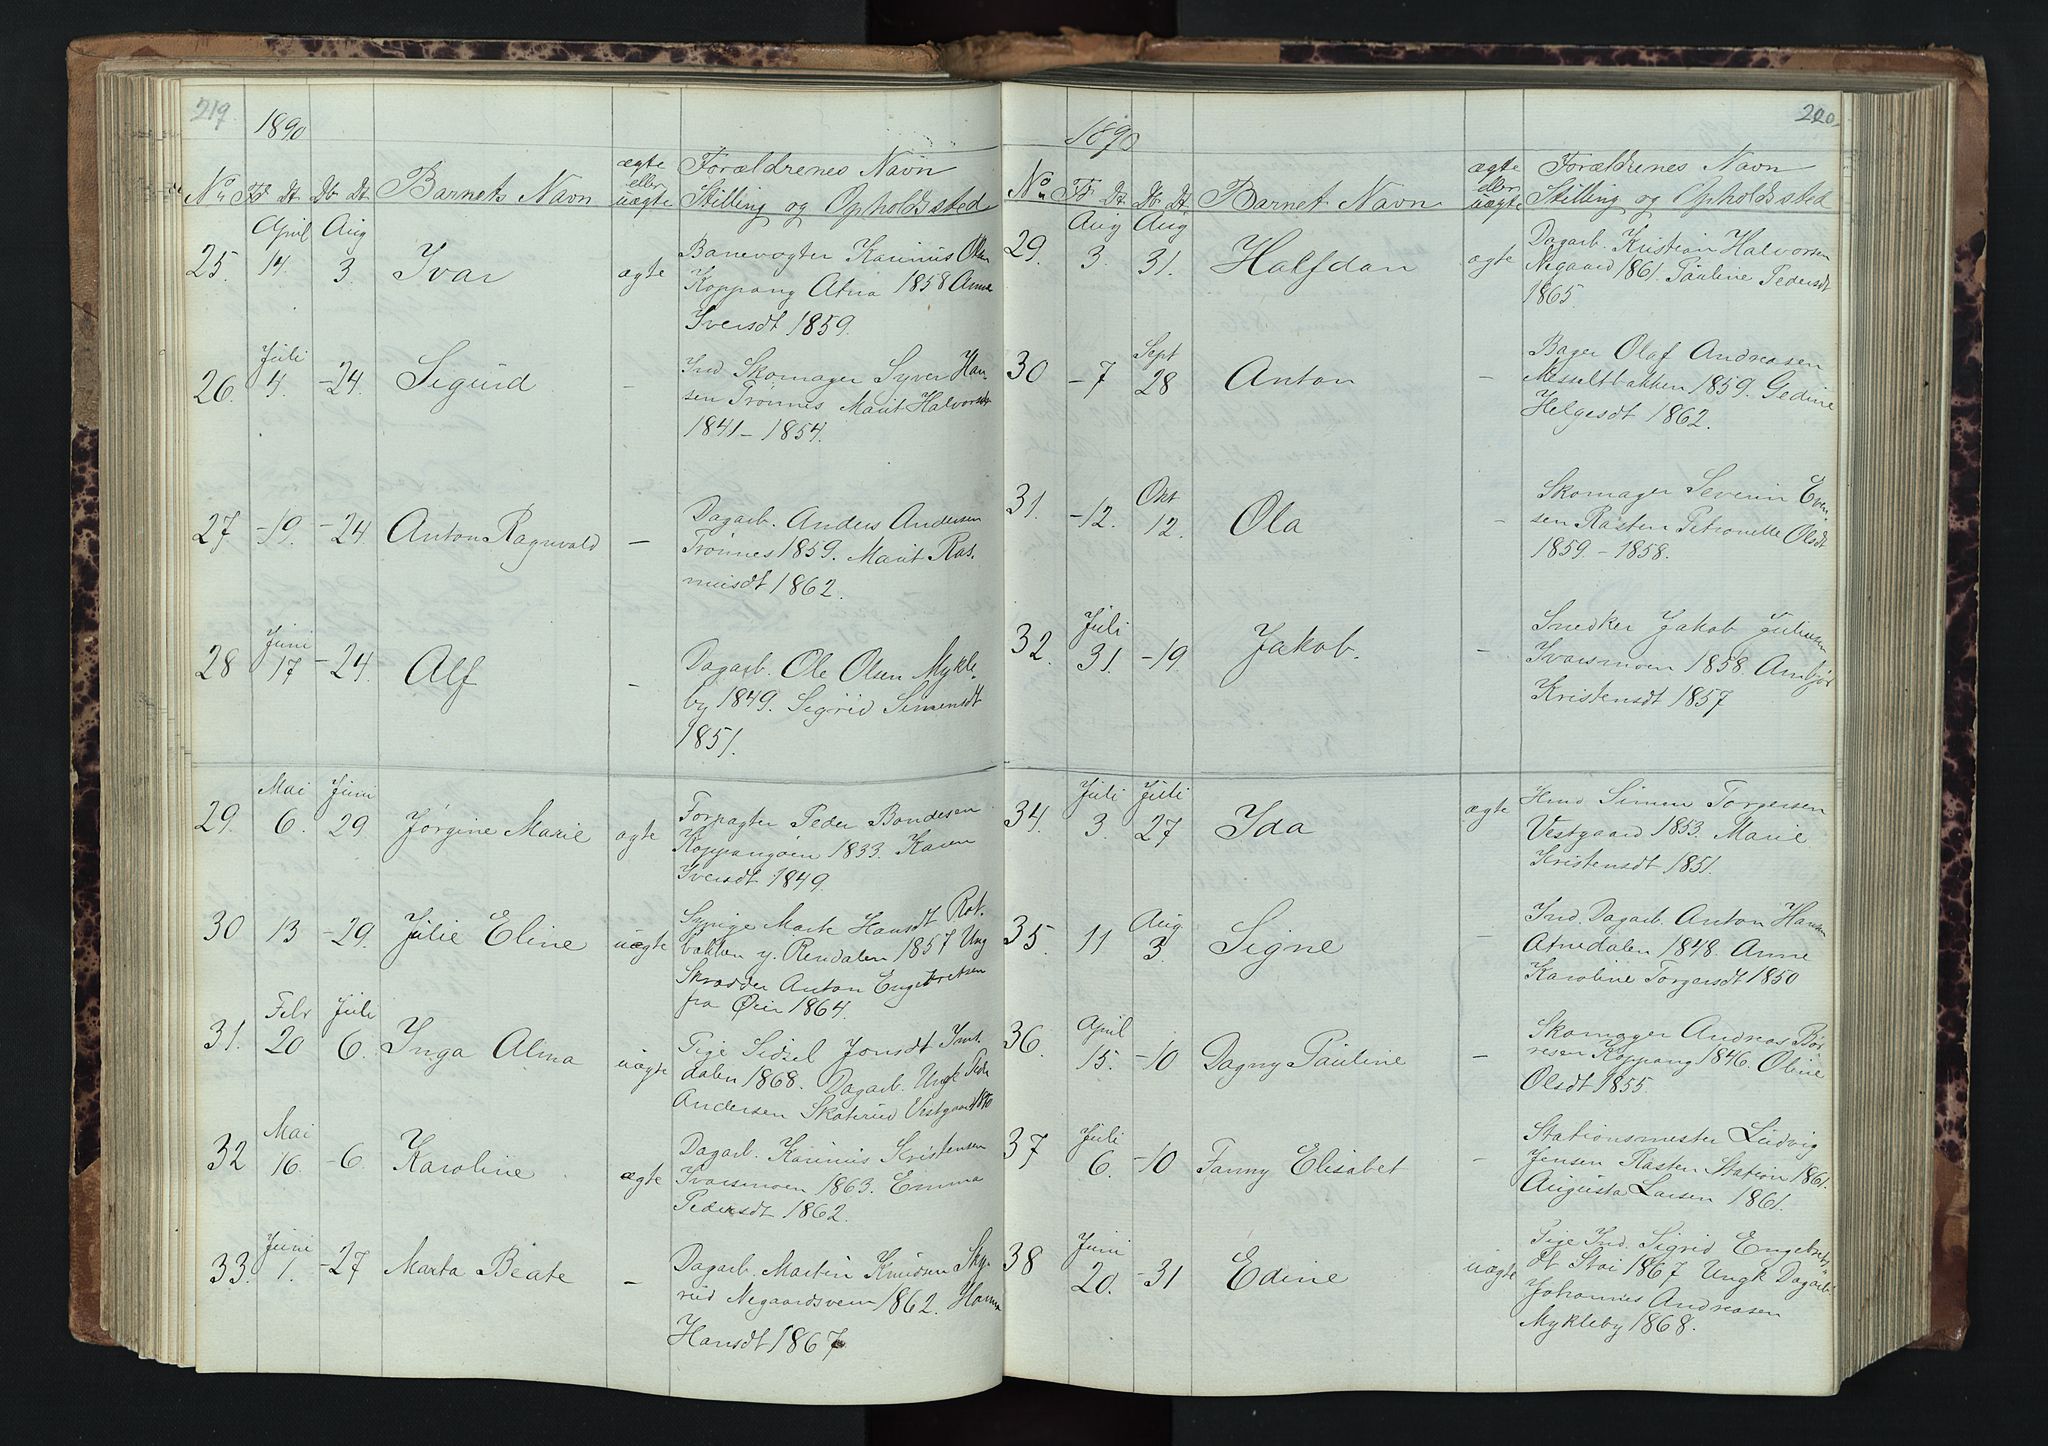 219
1890
No Fdt Dt. Barnets Navn
ægte
eller
uægte
Forældrenes Navn
Stilling og Opholdssted
25. April 14. Aug 3. Ivar ægte
Banevogter Karinus Olsen
Koppang Atna 1858 Anna
Iversdt 1859.
26. Juli 4. -24. Sigurd -
Ind. Skomager Syver Han-
sen Trønnes Marit Halvorsdt
1841-1854.
27 -19. -24 Anton Ragnvald -
Dagarb. Anders Andersen
Trønnes 1859. Marit Ras-
musdt 1862.
28 Juni 17 -24. Alf -
Dagarb. Ole Olsen Mykle-
by 1849. Sigrid Simensdt
1851.
29. Mai 6. Juni 29. Jørgine Marie ægte
Forpagter Peder Bondesen
Koppangøen 1833. Karen
Iversdt 1849.
30 13 -29. Julie Eline uægte
Sypige Marte Hansdt
bakken y. Rendalen 1857 Ung
Skrædder Anton Engebretsen
fra Øier 1864.
31. Febr 20 Juli 6. Inga Alma uægte
Pige Sidsel Jonsdt Imt
dalen 1868. Dagarb. Ungk
Andersen Skaterud Vestgaard
32 Mai 16. -6. Karoline ægte
Dagarb. Karinus Kristensen
Ivarsmoen 1863. Emma
Pedersdt 1862.
33. Juni 1. -27 Marta Beate -
Dagarb. Martin Knudsen Sky-
rud Negaardsveen 1862. Hanna
Hansdt 1867
220.
1890
No Fdt Dt. Barnets Navn
ægte
eller
uægte
Forældrenes Navn
Stilling og Opholdssted
29. Aug 3. Aug 31. Halfdan ægte
Dagarb. Kristian Halvorsen
Negaard 1861. Pauline Pedersdt
1865.
30 -7 Sept 28 Anton -
Bager Olaf Andreasen
Messeltbakken 1859. Gedine
Helgesdt 1862.
31. -12. Okt 12. Ola -
Skomager Severin Even-
sen Rasten Petronelle Olsdt
1859-1858.
32. Juli 31. -19. Jakob. -
Snedker Jakob Juliusen
Ivarsmoen 1858. Ambjør
Kristensdt 1857
34. Juli 3. Juli 27 Ida ægte
Hmd Simen Torgersen
Vestgaard 1853. Marie
Kristensdt 1851.
35. 11 Aug 3. Signe -
Ind. Dagarb. Anton Hansen
Atnedalen 1848. Anne
Karoline Torgersdt 1850
36. April 15. -10 Dagny Pauline -
Skomager Andreas Bør-
resen Koppang 1846. Oline
Olsdt 1855.
37 Juli 6. -10 Fanny Elisabet -
Stationsmester Ludvig
Jensen Rasten Station 1861.
Augusta Larsen 1861.
38 Juni 20. -31 Edine uægte
Pige Ind. Sigrid Engebrets-
dt Stai 1867 Ungk Dagarb.
Johannes Andreasen
Mykleby 1868.